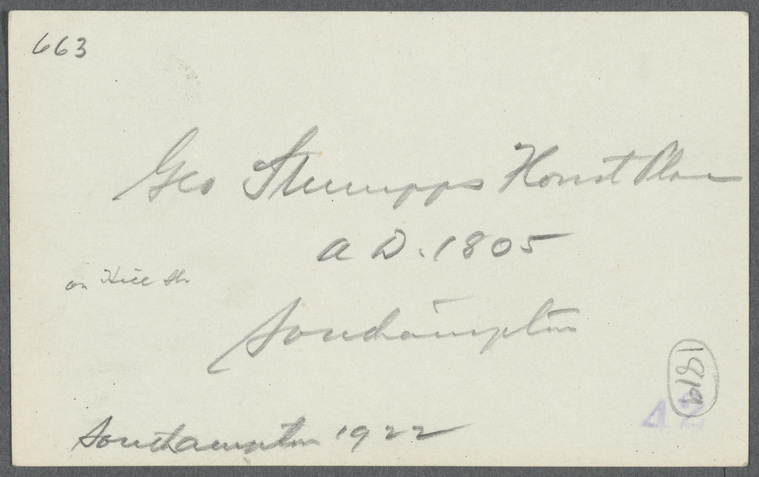 663
Geo Stumpps Hous Plan
A D. 1805
on Hill St.
Southampton
1819
42
Southampton 1922